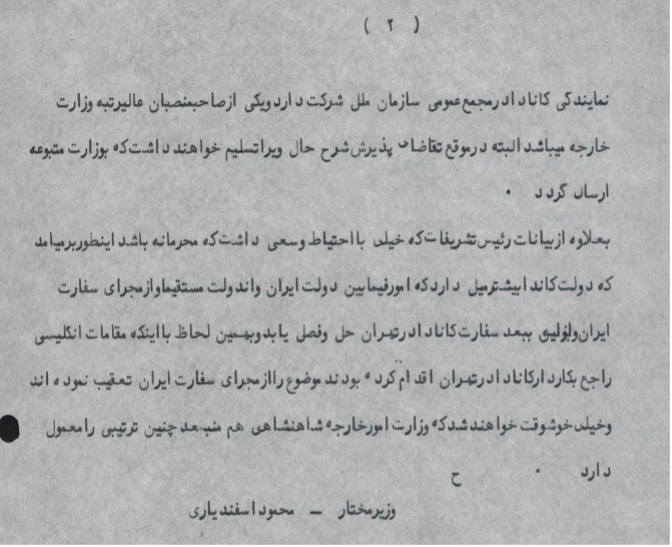 ( ۲ )
نمایندگی کانادا در مجمع عمومی سازمان ملل شرکت دارد ویکی از صاحبمنصبان عالیرتبه وزارت
خارجه میباشد البته در موقع تقاضای پذیرش شرح حال ویرا تسلیم خواهند داشت که بوزارت متبوعه
ارسال گردد .
بعلاوه از بیانات رئیس تشریفات که خیلی با احتیاط وسعی داشت که محرمانه باشد اینطور برمیامد
که دولت کانادا بیشتر میل دارد که امور فیمابین دولت ایران واندولت مستقیما واز مجرای سفارت
ایران واز این ببعد سفارت کانادا در تهران حل وفصل یابد وبهمین لحاظ با اینکه مقامات انگلیسی
راجع بکاردار کانادا در تهران اقدام کرده بودند موضوع را از مجرای سفارت ایران تعقیب نموده اند
وخیلی خوشوقت خواهند شد که وزارت امور خارجه شاهنشاهی هم منبعد چنین ترتیبی را معمول
دارد . ح
وزیر مختار – محمود اسفندیاری